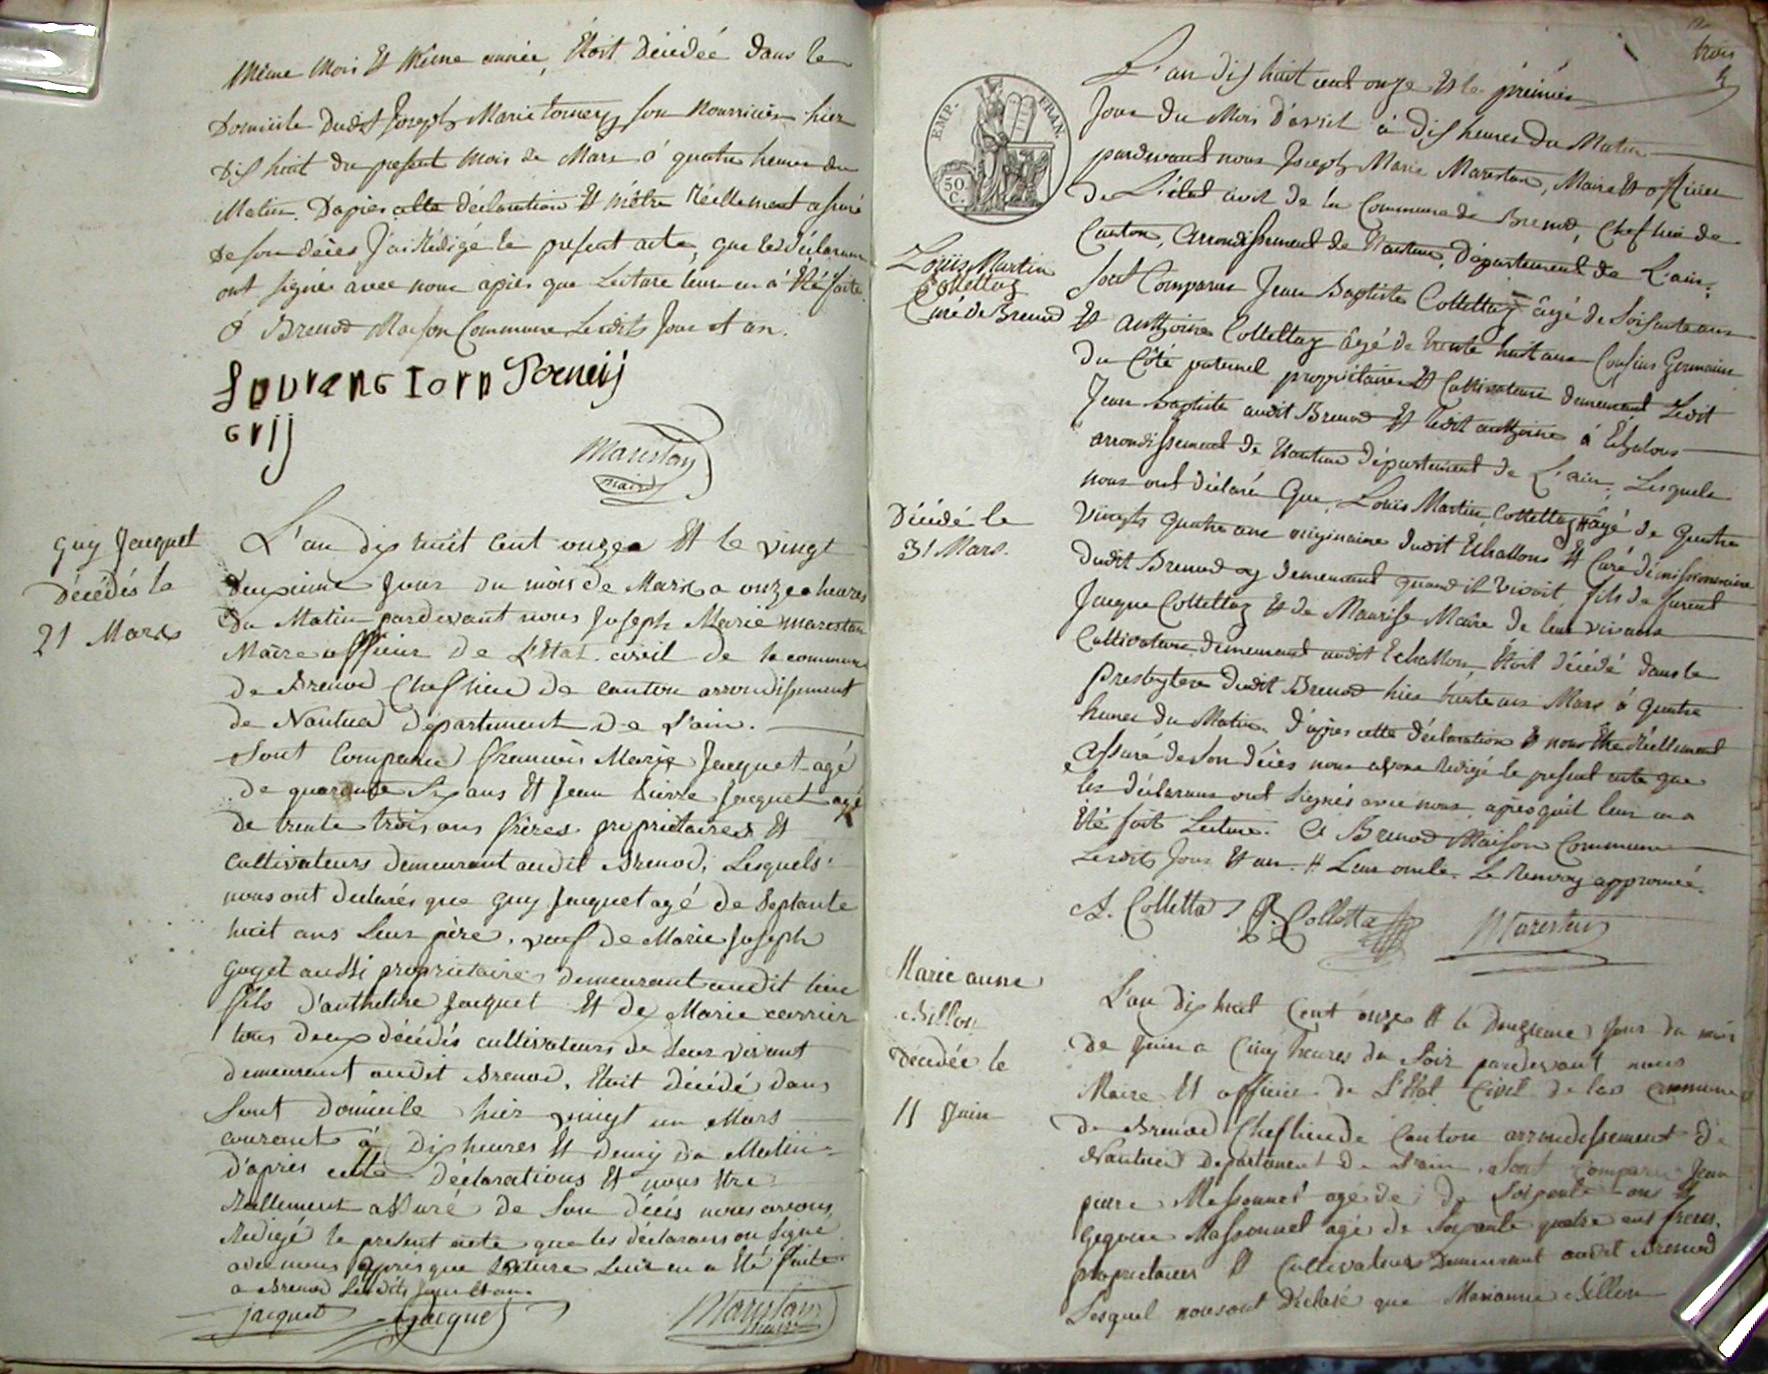 Même Mois Et Même année, Etoit Décédée dans le
Domicile dudit Joseph Marie Torney son Nourricier hier
Dis huit du present mois de Mars à quatre heures du
Matin. D'apres cette déclaration Et m'être Réellement assuré
de son décès J'ai Rédigé le present acte, que les déclarans
ont signés avec nous après que Lecture leur en à Eté faite.
à Brenod Maison Commune Lesdits Jour et an.
Torneÿ
Grÿ
Marestan
maire
Guy Jacquet
Décédés le
21 Mars
L'an dix huit Cent onze Et le vingt
deuxieme Jour du mois de Mars a onze heures
du Matin pardevant nous Joseph Marie marestan
Maire officier de L'Etat civil de la commune
de Brenod Chef lieu de canton arrondissement
de Nantua département de l'ain.
Sont Comparu François Marie Jacquet agé
de quarante Six ans Et Jean Pierre Jacquet agé
de trente trois ans frères proprietaires Et
cultivateurs demeurant audit Brenod, Lesquels
nous ont declarés que Guy Jacquet agé de Septante
huit ans Leur père, veuf de Marie Joseph
Goget aussi proprietaire demeurant audit lieu
fils d'anthelme Jacquet Et de Marie carrier
tous deux décédés cultivateurs de Leur vivant
demeurant audit Brenod, Etoit décédé dans
Sont domicile hier vingt un Mars
courant à Dix heures Et demy du Matin
d'après cette déclarations Et nous Etre
Réellement assuré de Son décès nous avons
Redigé le present acte que les déclarans on Signé
avec nous après que Lecture Leur en a Eté faite
a Brenod Lesdits Jour Et an.
Jacquet Jacquet Marestan
maire
trois
EMP. FRAN.
50 C.
L'an dis huit cent onze Et le prémier
Jour du Mois d'avril à dis heures du Matin
pardevant nous Joseph Marie Marestan, Maire Et officier
de L'état civil de la Commune de Brenod, Chef lieu de
Canton, arrondissement de Nantua, département de L'ain;
Louis Martin
Collettaz
Curé de Brenod
Sont Comparus Jean Baptiste Collettaz âgé de soisante ans
Et Anthoine Collettaz âgé de trente huit ans Cousins Germains
du Côté paternel propriétaires Et Cultivateurs demeurant Ledit
Jean Baptiste audit Brenod Et ledit anthoine à Echalons
arrondissement de Nantua département de L'ain, Lesquels
nous ont déclaré Que, Louis Martin Collettaz # âgé de quatre
Décédé le
31 Mars.
Vingts quatre ans originaire dudit Echallons Et Curé démissionnaire
dudit Brenod oy demeurant quand il vivoit fils de furent
Jacque Collettaz Et de Maurise Maire de leur vivans
Cultivateurs demeurant audit Echallon, Etoit décédé dans le
Presbytere dudit Brenod hier trente un Mars à quatre
heures du Matin d'après cette déclaration Et nous Etre réellement
assuré de son décès nous avons redigé le present acte que
les déclarans ont signés avec nous après qu'il leur en a
Eté fait Lecture. A Brenod Maison Commune
Lesdits Jour Et an. # Leur oncle. Le Renvoy approuvé.
A. Colletta JB. Colletta Marestan
Marie anne
Billon
Décédée le
11 Juin
L'an dix huit Cent onze Et le Douzieme Jour du mois
de Juin a Cinq heures du Soir pardevant nous
Maire Et officier de L'Etat Civil de la commune
de Brenod Chef lieu de Canton arrondissement de
Nantua Departement de L'ain. Sont comparu Jean
pierre Massonnet agé de de Soixante ans Et
Gregoire Massonnet agé de Soixante quatre ans freres,
proprietaires Et Cultivateurs Demeurant audit Brenod
Lesquel nous ont Declaré que Marianne Billon